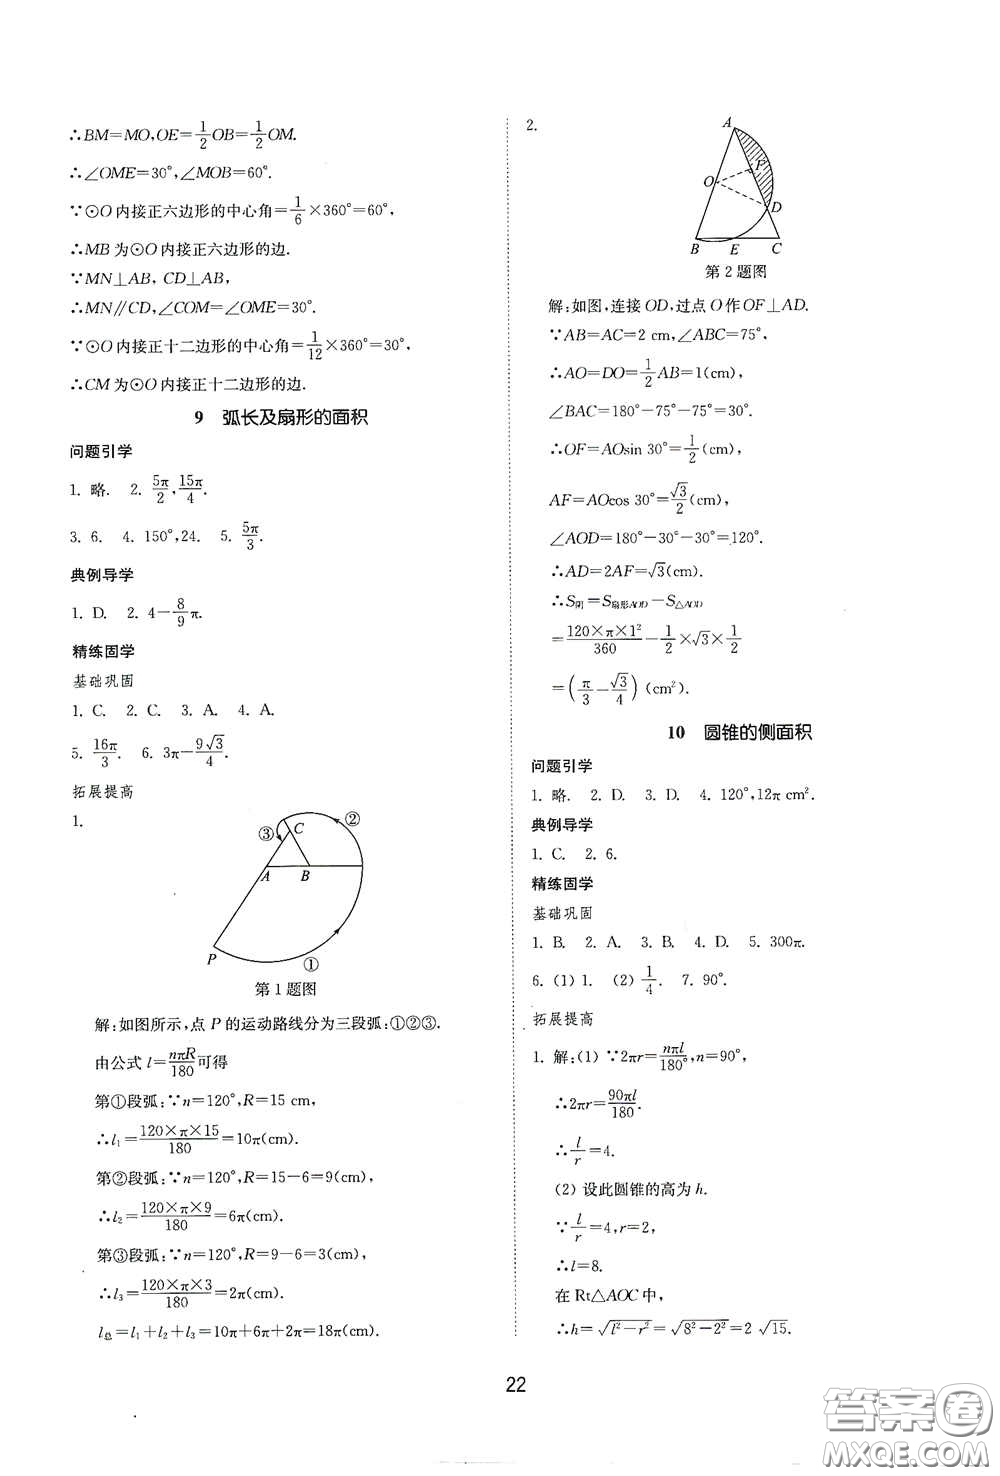 ∴BM=MO,OE=1/2 OB=1/2 OM.
∴∠OME=30°,∠MOB=60°.
∵⊙O内接正六边形的中心角=1/6×360°=60°,
∴MB为⊙O内接正六边形的边.
∵MN⊥AB, CD⊥AB,
∴MN∥CD,∠COM=∠OME=30°.
∵⊙O内接正十二边形的中心角=1/12×360°=30°,
∴CM为⊙O内接正十二边形的边.
9 弧长及扇形的面积
问题引学
1. 略. 2. 5π/2,15π/4.
3. 6. 4. 150°,24. 5. 5π/3.
典例导学
1. D. 2. 4-8/9π.
精练固学
基础巩固
1. C. 2. C. 3. A. 4. A.
5. 16π/3. 6. 3π-9√3/4.
拓展提高
1.
③ C ②
A B
P ①
第1题图
解:如图所示,点P的运动路线分为三段弧:①②③.
由公式l=nπR/180可得
第①段弧:∵n=120°,R=15 cm,
∴l₁=120×π×15/180=10π(cm).
第②段弧:∵n=120°,R=15-6=9(cm),
∴l₂=120×π×9/180=6π(cm).
第③段弧:∵n=120°,R=9-6=3(cm),
∴l₃=120×π×3/180=2π(cm).
l总=l₁+l₂+l₃=10π+6π+2π=18π(cm).
2.
A
F
O
D
B E C
第2题图
解:如图,连接OD,过点O作OF⊥AD.
∵AB=AC=2 cm,∠ABC=75°,
∴AO=DO=1/2AB=1(cm),
∠BAC=180°-75°-75°=30°.
∴OF=AOsin 30°=1/2(cm),
AF=AOcos 30°=√3/2(cm),
∠AOD=180°-30°-30°=120°.
∴AD=2AF=√3(cm).
∴S阴=S扇形AOD-S△AOD
=120×π×1²/360-1/2×√3×1/2
=(π/3-√3/4)(cm²).
10 圆锥的侧面积
问题引学
1. 略. 2. D. 3. D. 4. 120°,12π cm².
典例导学
1. C. 2. 6.
精练固学
基础巩固
1. B. 2. A. 3. B. 4. D. 5. 300π.
6. (1) 1. (2) 1/4. 7. 90°.
拓展提高
1. 解:(1) ∵2πr=nπl/180°,n=90°,
∴2πr=90πl/180.
∴l/r=4.
(2) 设此圆锥的高为h.
∵l/r=4,r=2,
∴l=8.
在Rt△AOC中,
∴h=√(l²-r²)=√(8²-2²)=2√15.
22
答案卷
MXQE.COM